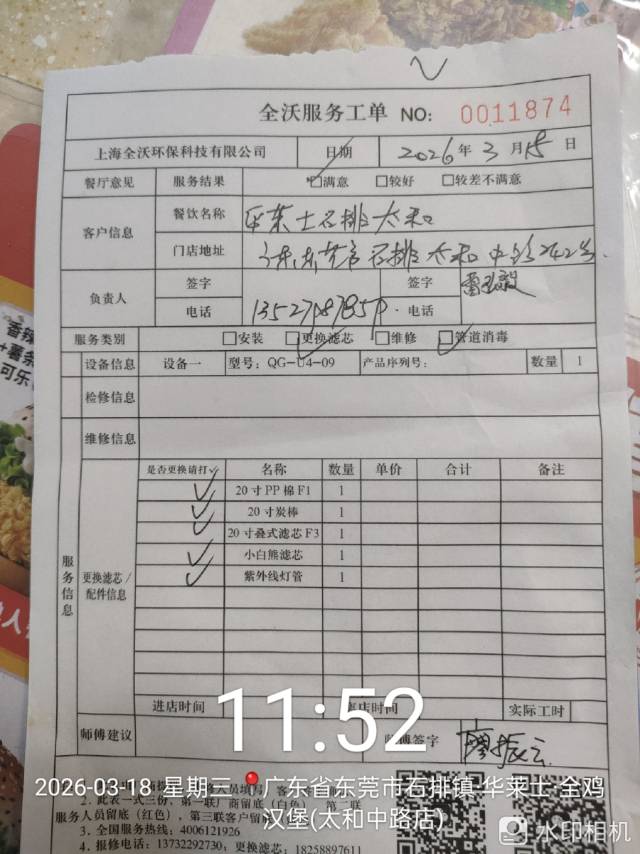 全沃服务工单 NO: 0011874
上海全沃环保科技有限公司 日期 2026年3月18日
餐厅意见 服务结果 ☑满意 □较好 □较差不满意
客户信息 餐饮名称 华莱士石排太和
门店地址 广东东莞市石排太和中路242号
负责人 签字 签字
电话 电话
服务类别 □安装 ☑更换滤芯 □维修 ☑管道消毒
设备信息 设备一 型号: QG-U4-09 产品序列号: 数量 1
检修信息
维修信息
服务信息
更换滤芯/配件信息
是否更换请打✓ 名称 数量 单价 合计 备注
✓ 20寸PP棉F1 1
✓ 20寸炭棒 1
✓ 20寸叠式滤芯F3 1
✓ 小白熊滤芯 1
✓ 紫外线灯管 1
进店时间 离店时间 实际工时
师傅建议 师傅签字 廖振云
11:52
2026-03-18 星期三 广东省东莞市石排镇·华莱士·全鸡汉堡(太和中路店)
2. 此表一式三份，第一联厂商留底(白色) 第二联
服务人员留底(红色)，第三联客户留
3. 全国服务热线: 4006121926
4. 报修电话: 13732292730, 更换滤芯: 18258897611
水印相机
香辣
+薯条
可乐